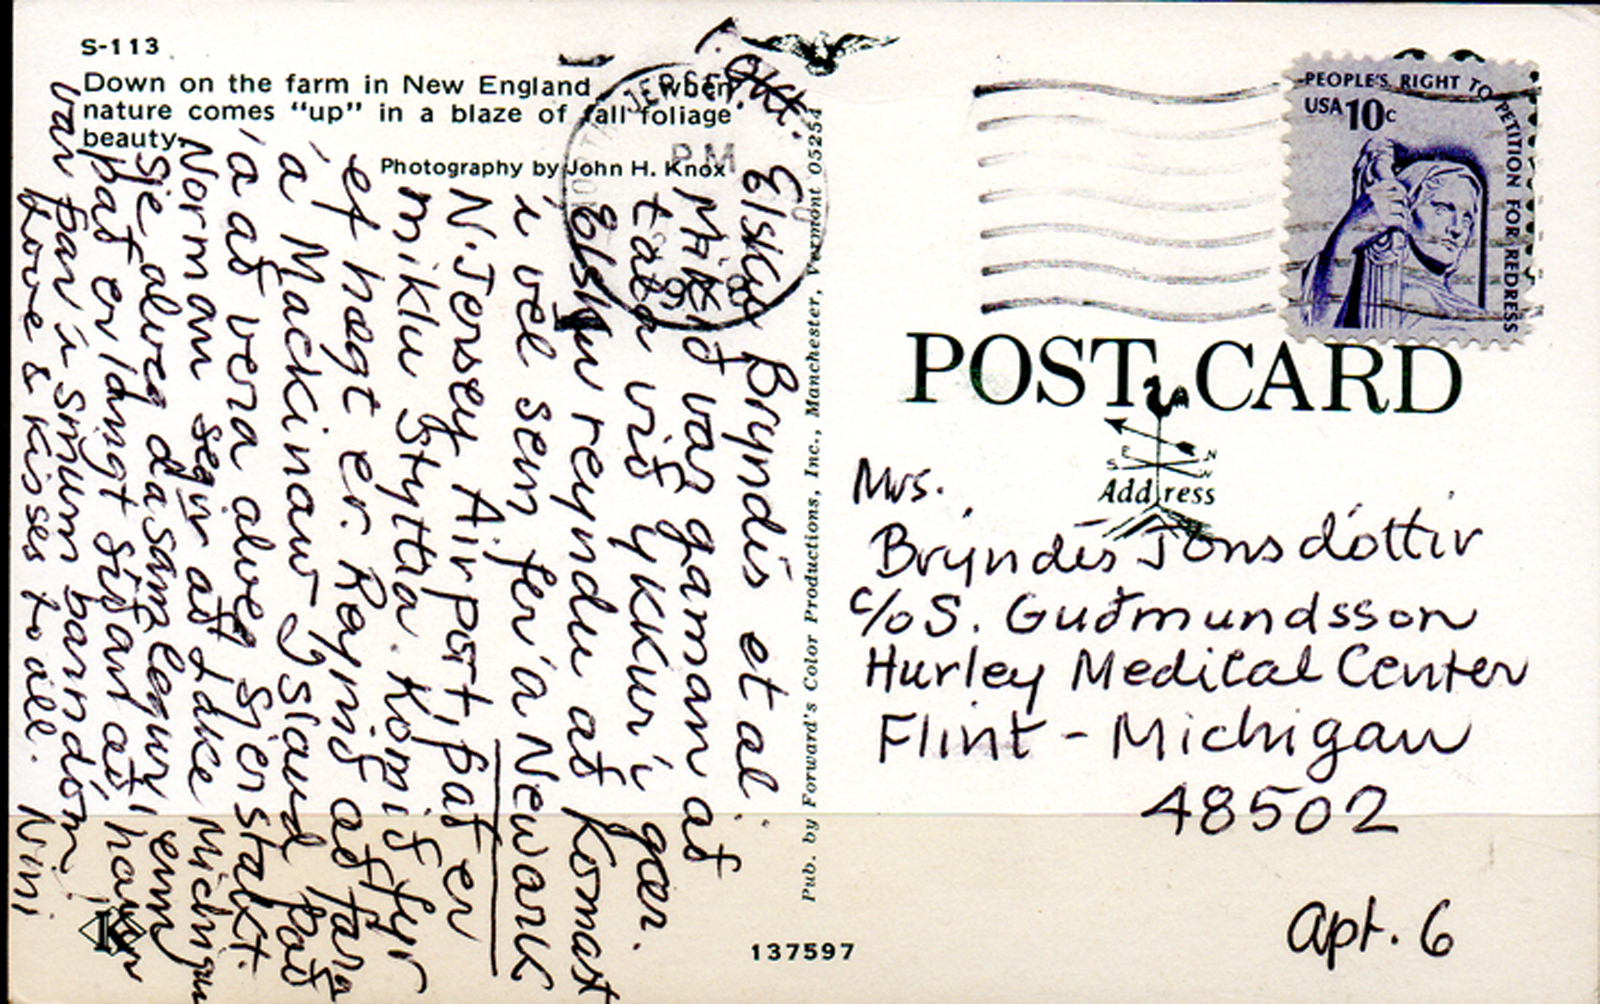 S-113
Down on the farm in New England when
nature comes "up" in a blaze of fall foliage
beauty.
Photography by John H. Knox
NORTH JERSEY
PM
Pub. by Forward's Color Productions, Inc., Manchester, Vermont 05254
PEOPLE'S RIGHT TO PETITION FOR REDRESS
USA 10c
POST CARD
E N
S W
Address
Mrs.
Bryndís Jónsdóttir
c/o S. Guðmundsson
Hurley Medical Center
Flint - Michigan
48502
Apt. 6
137597
K
1. Okt.
Elsku Bryndís et al
Mikið var gaman að
tala við ykkur í gær.
Elsku reyndu að komast
í vél sem fer á Newark
N. Jersey Airport, það er
miklu styttra. Komið fyr
ef hægt er. Reynið að fara
á Mackinaw Island það
á að vera alveg sjerstakt.
Norman segir að Lake Michigan
sje alveg dásamlegur, enn
það er langt síðan að hann
var þar í sínum barndóm,
Love & Kisses to all. Nini